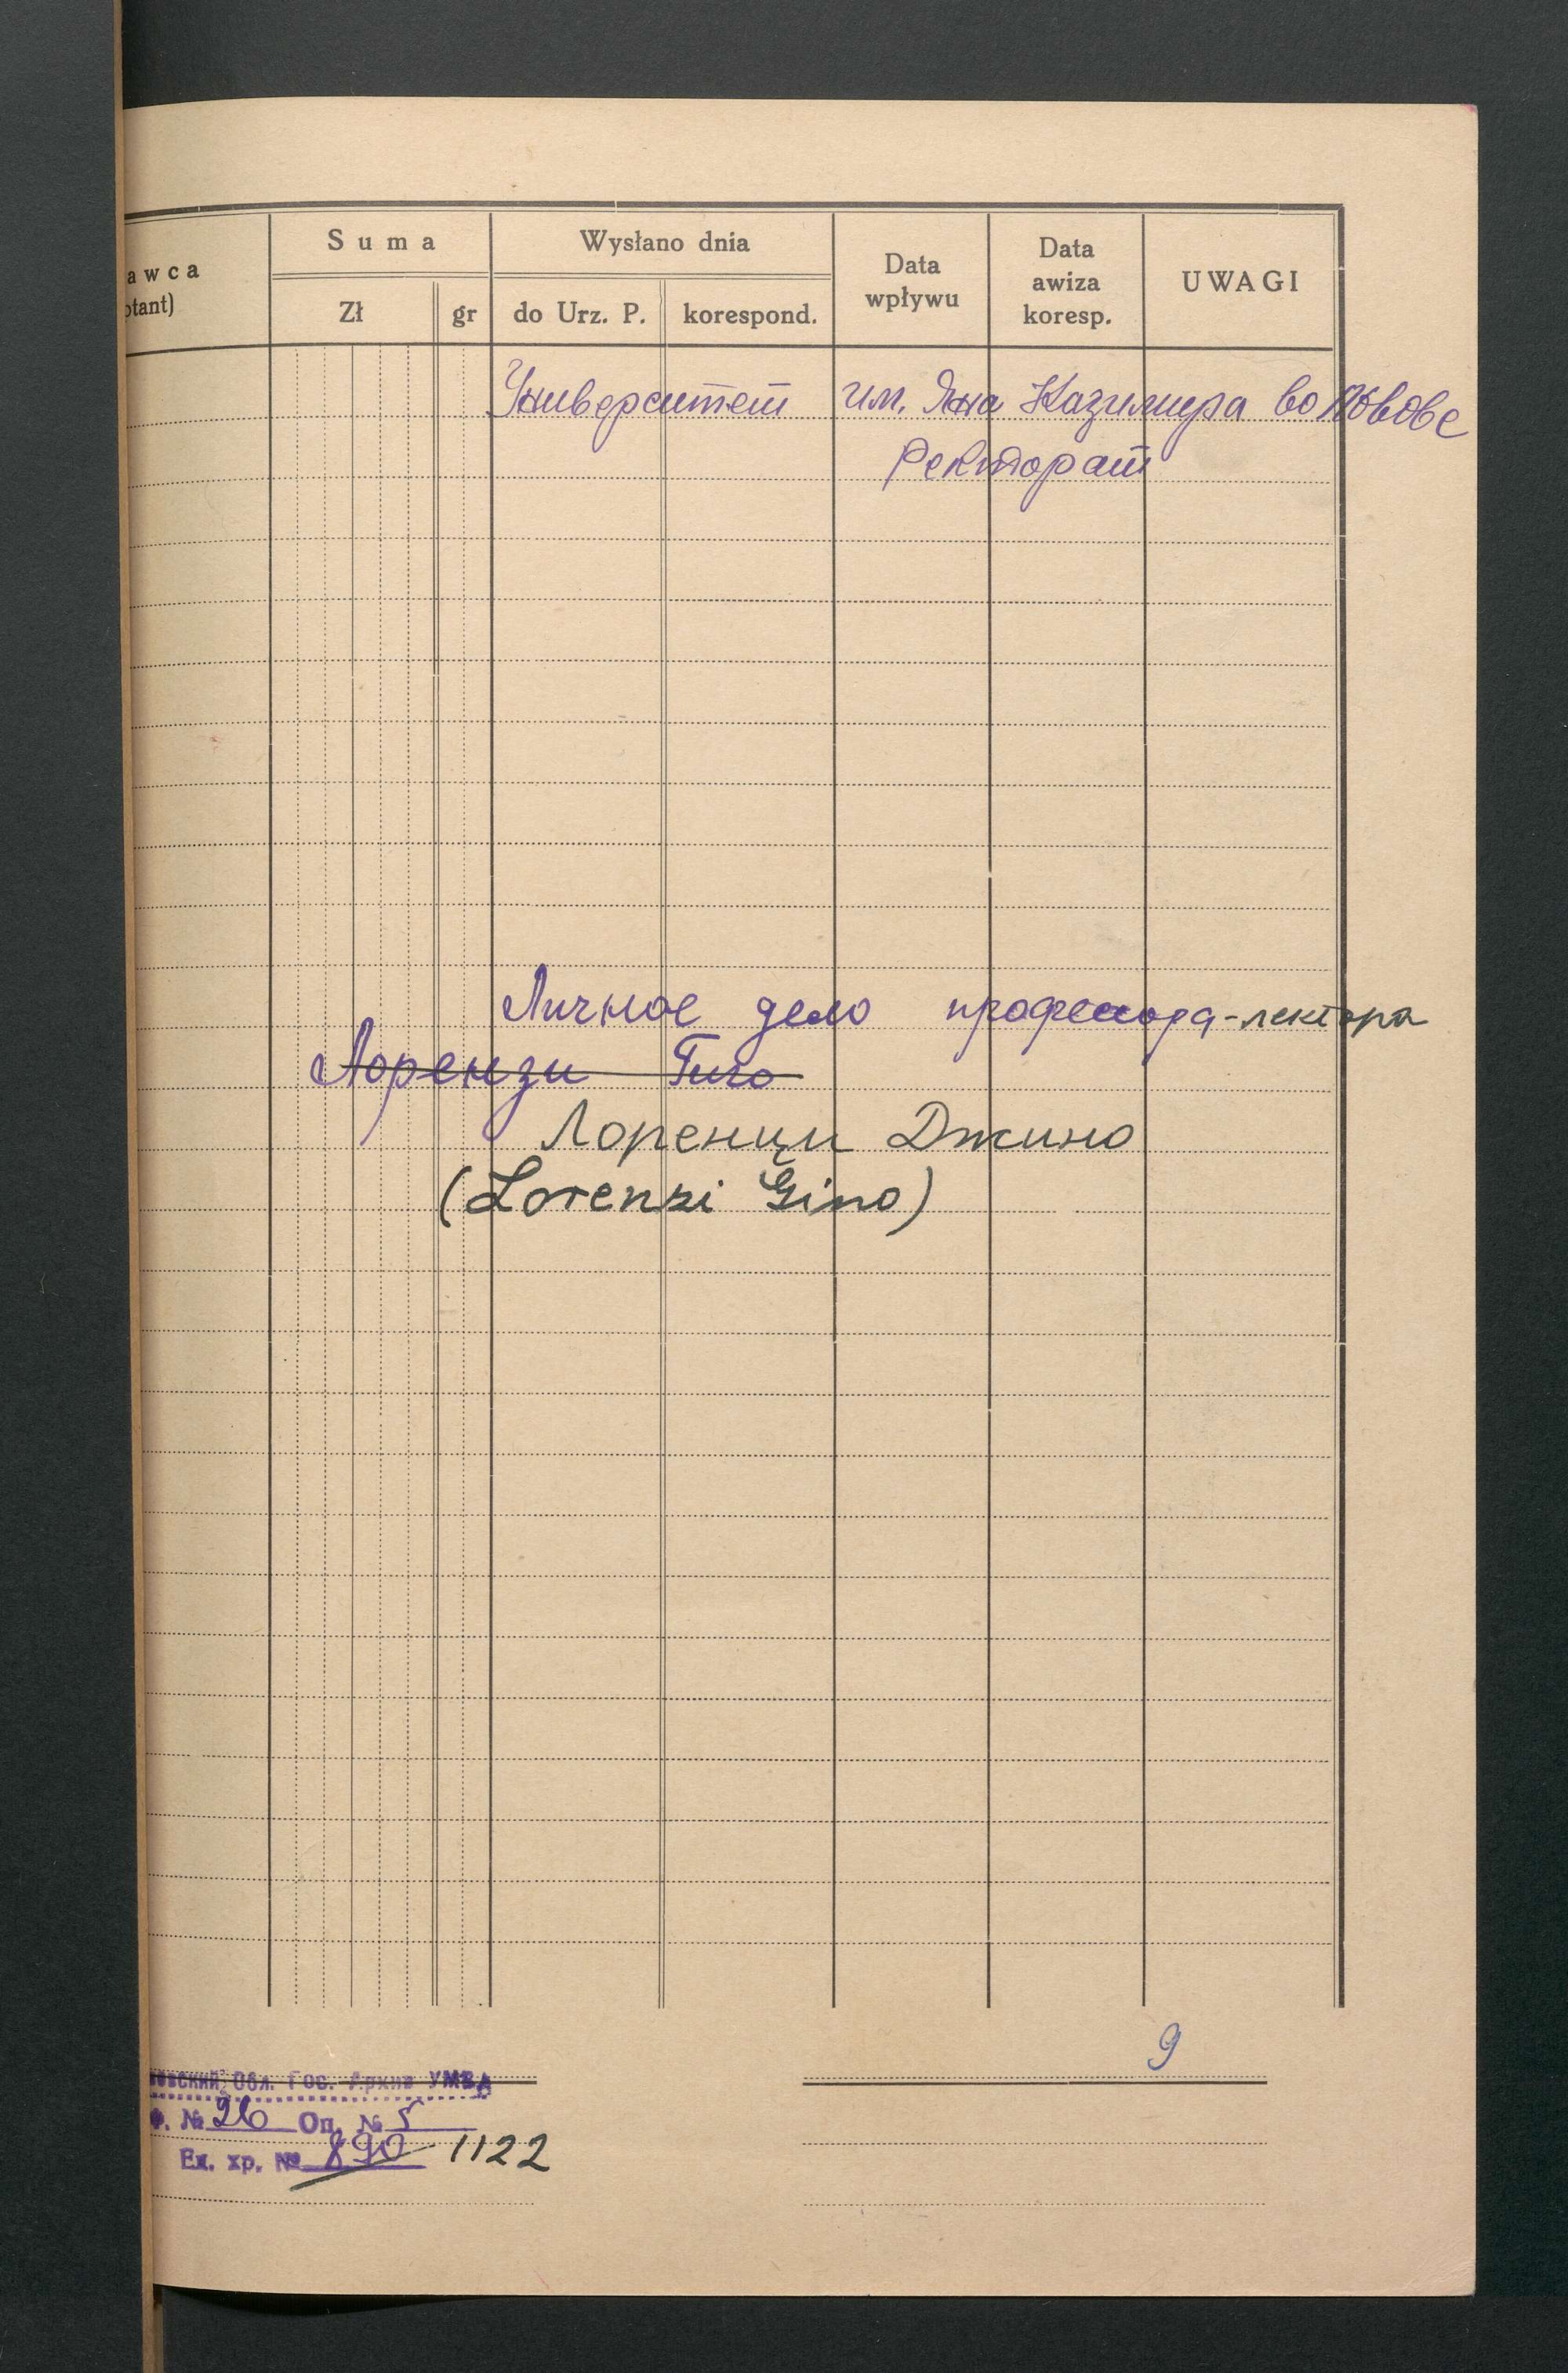 Suma
Wysłano dnia
Data wpływu
Data awiza koresp.
UWAGI
awca
otant)
Zł
gr
do Urz. P.
korespond.
Университет им. Яна Казимира во Львове
Ректорат
Личное дело професора-лектора
Лорензи Гино
Лоренци Джино
(Lorenzi Gino)
9
овский Обл. Гос. Архив УМВД
Ф. № 26 Оп. № 5
Ед. хр. № 890 1122